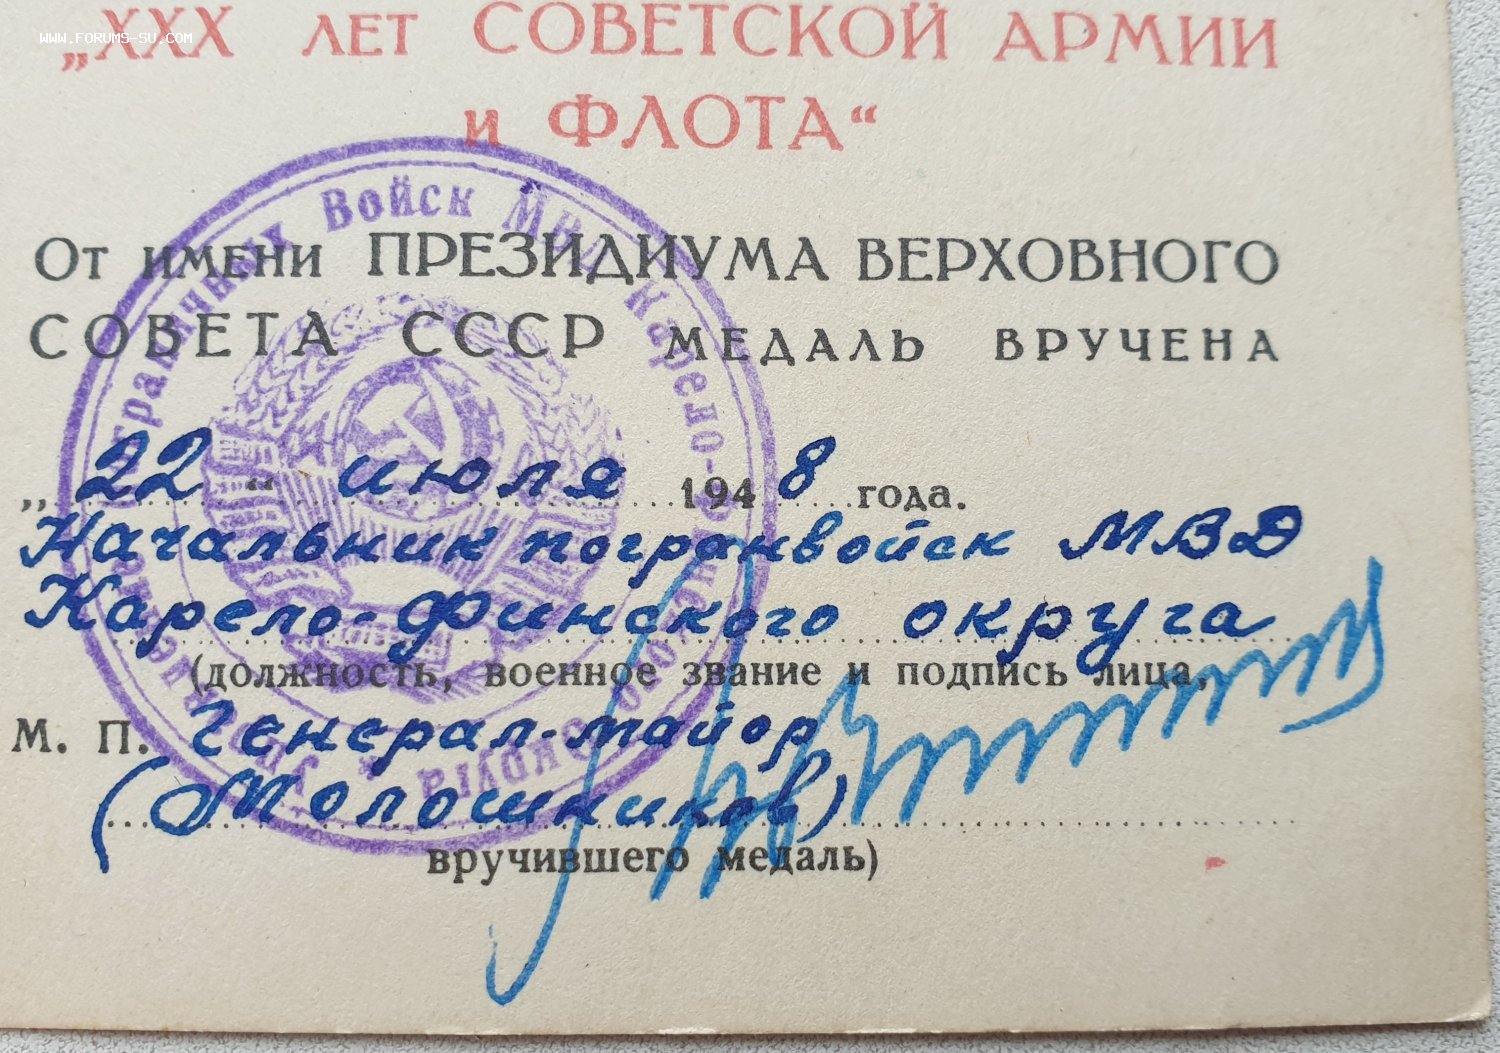 WWW.FORUMS-SU.COM
„XXX ЛЕТ СОВЕТСКОЙ АРМИИ
и ФЛОТА“
От имени ПРЕЗИДИУМА ВЕРХОВНОГО
СОВЕТА СССР МЕДАЛЬ ВРУЧЕНА
„22“ июля 1948 года.
Начальник погранвойск МВД
Карело-Финского округа
(должность, военное звание и подпись лица,
М. П. Генерал-майор
(Молошников)
вручившего медаль)
Пограничных Войск МВД Карело-Финского округа